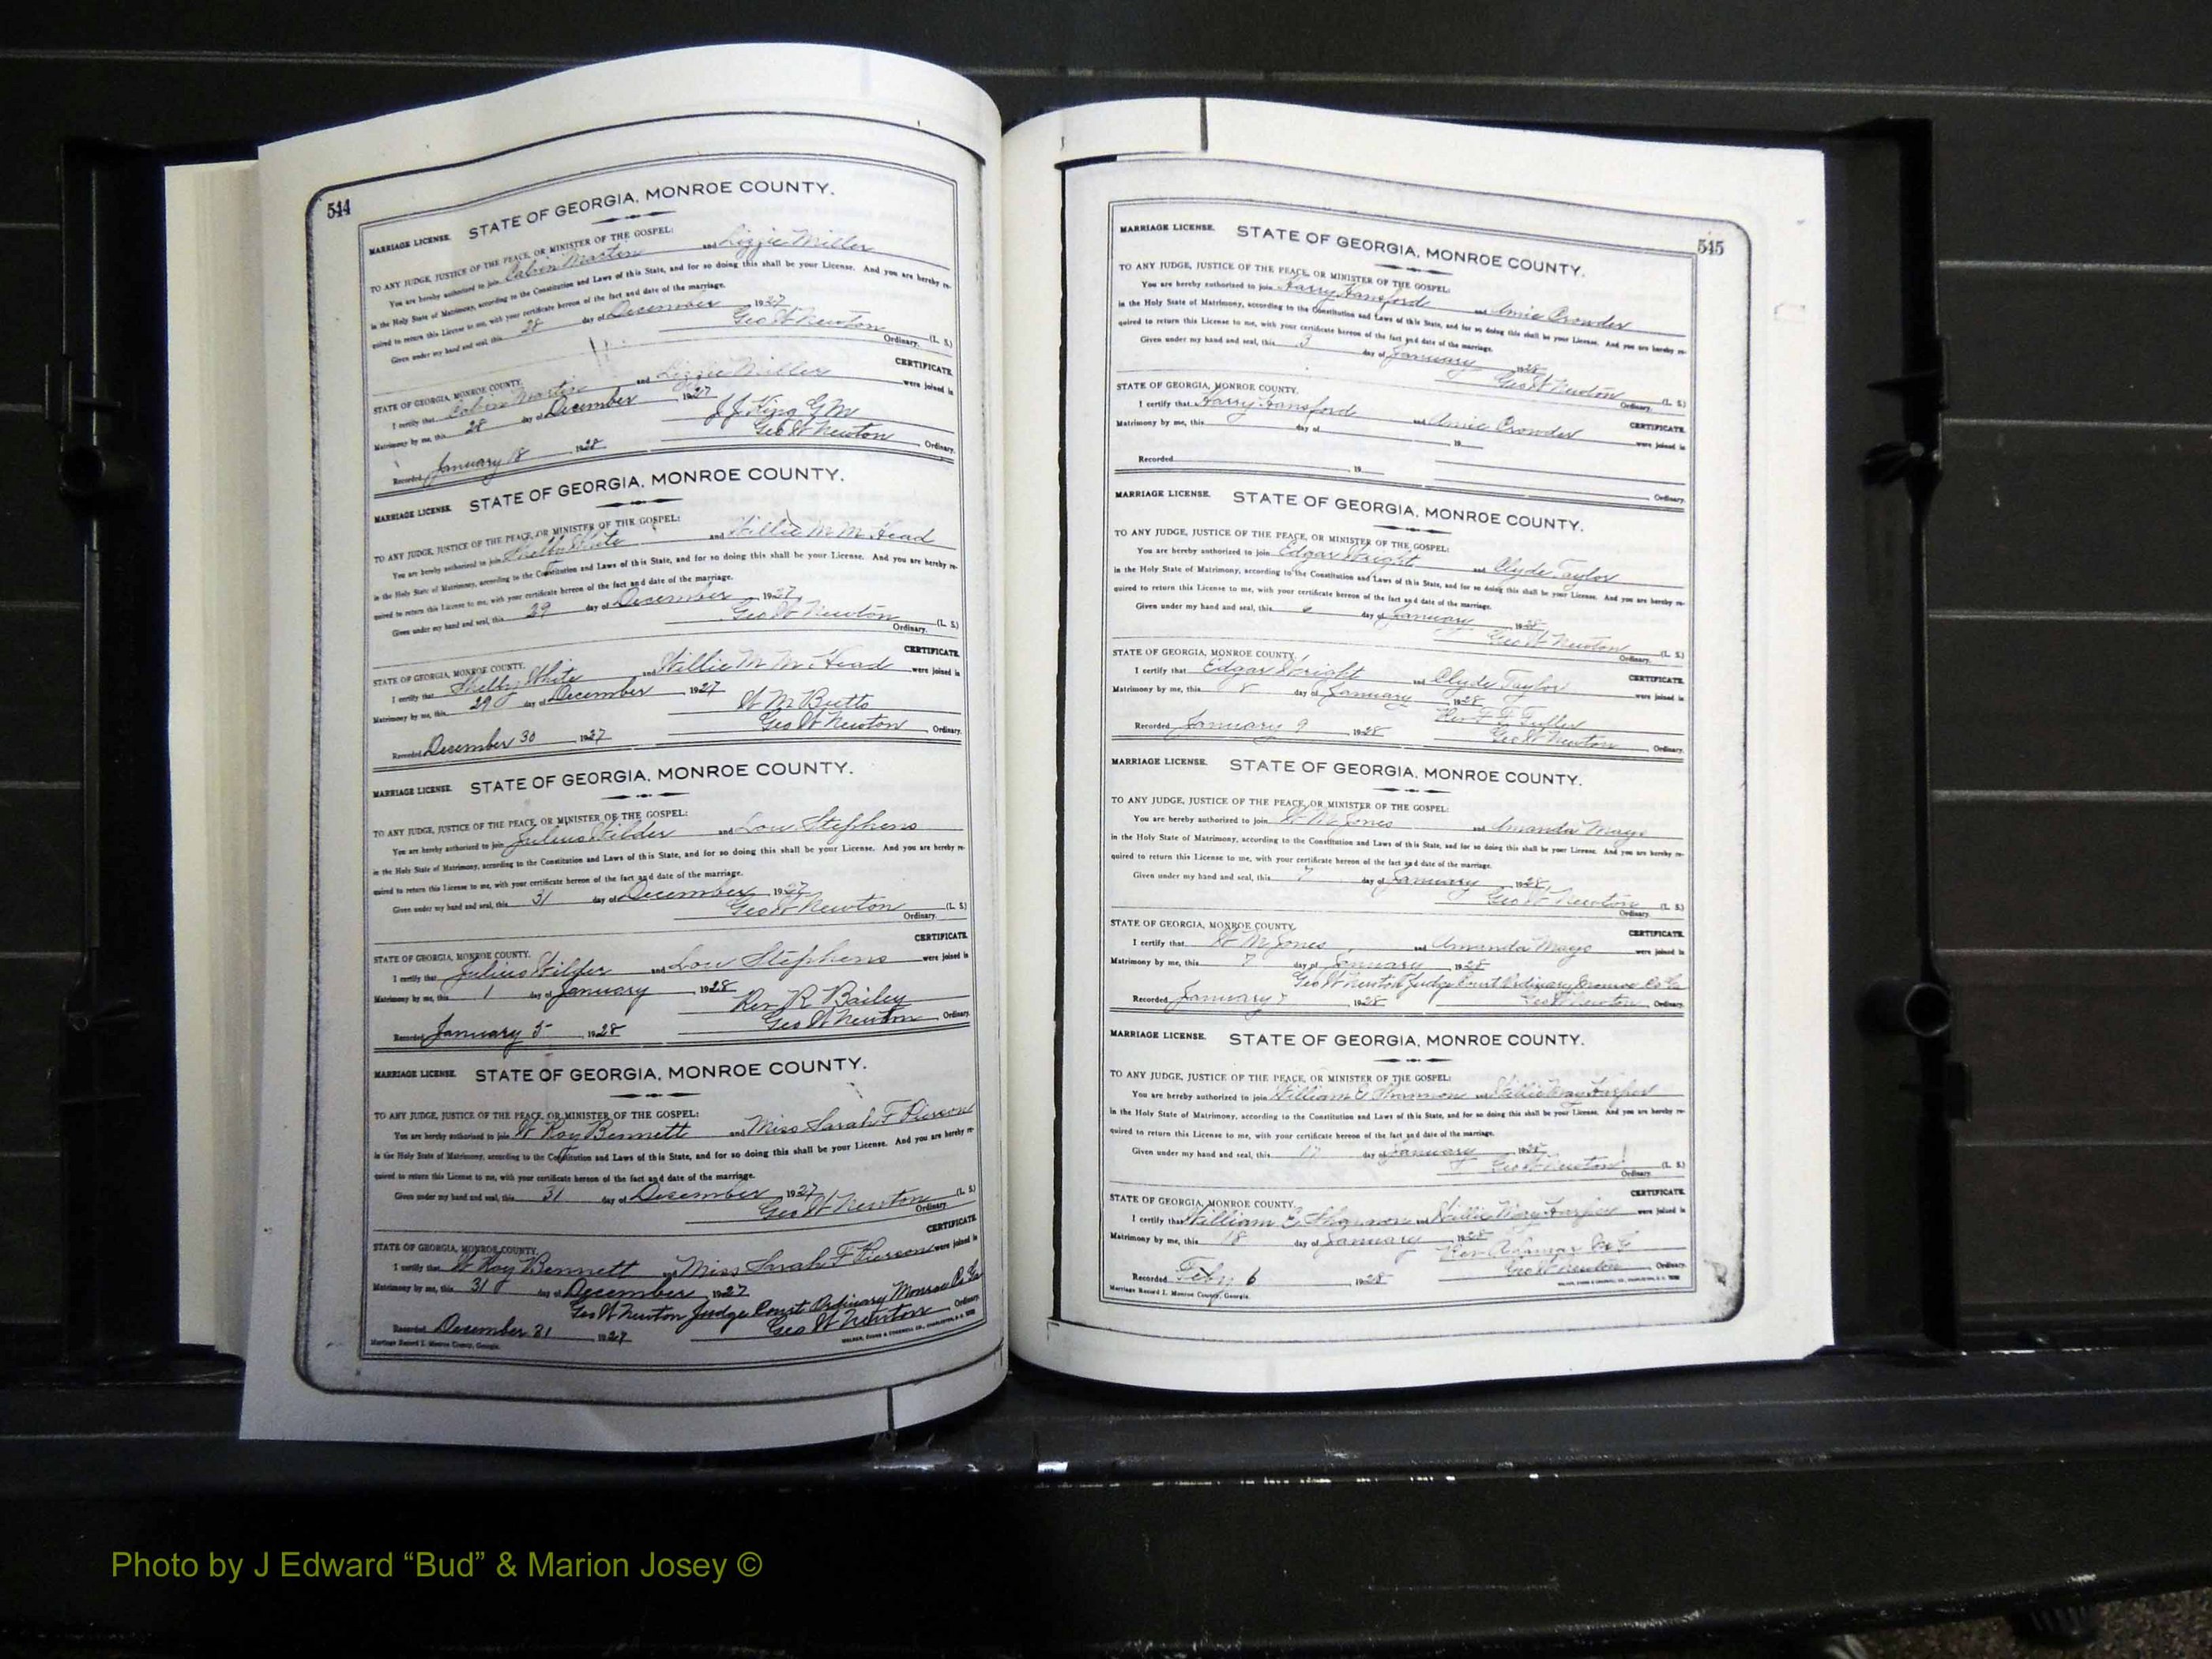 544
STATE OF GEORGIA, MONROE COUNTY.
MARRIAGE LICENSE.
TO ANY JUDGE, JUSTICE OF THE PEACE, OR MINISTER OF THE GOSPEL:
You are hereby authorized to join Calvin Martin and Lizzie Miller
in the Holy State of Matrimony, according to the Constitution and Laws of this State, and for so doing this shall be your License. And you are hereby re-
quired to return this License to me, with your certificate hereon of the fact and date of the marriage.
Given under my hand and seal, this 28 day of December 1927
Geo W Newton (L. S.)
Ordinary.
CERTIFICATE.
STATE OF GEORGIA, MONROE COUNTY.
I certify that Calvin Martin and Lizzie Miller were joined in
Matrimony by me, this 28 day of December 1927
J J King G M
Recorded January 18 1928 Geo W Newton Ordinary.
STATE OF GEORGIA, MONROE COUNTY.
MARRIAGE LICENSE.
TO ANY JUDGE, JUSTICE OF THE PEACE, OR MINISTER OF THE GOSPEL:
You are hereby authorized to join Shelby White and Willie M M Head
in the Holy State of Matrimony, according to the Constitution and Laws of this State, and for so doing this shall be your License. And you are hereby re-
quired to return this License to me, with your certificate hereon of the fact and date of the marriage.
Given under my hand and seal, this 29 day of December 1927
Geo W Newton (L. S.)
Ordinary.
CERTIFICATE.
STATE OF GEORGIA, MONROE COUNTY.
I certify that Shelby White and Willie M M Head were joined in
Matrimony by me, this 29 day of December 1927
W M Butts
Recorded December 30 1927 Geo W Newton Ordinary.
STATE OF GEORGIA, MONROE COUNTY.
MARRIAGE LICENSE.
TO ANY JUDGE, JUSTICE OF THE PEACE, OR MINISTER OF THE GOSPEL:
You are hereby authorized to join Julius Wilder and Lou Stephens
in the Holy State of Matrimony, according to the Constitution and Laws of this State, and for so doing this shall be your License. And you are hereby re-
quired to return this License to me, with your certificate hereon of the fact and date of the marriage.
Given under my hand and seal, this 31 day of December 1927
Geo W Newton (L. S.)
Ordinary.
CERTIFICATE.
STATE OF GEORGIA, MONROE COUNTY.
I certify that Julius Wilder and Lou Stephens were joined in
Matrimony by me, this 1 day of January 1928
Rev R Bailey
Recorded January 5 1928 Geo W Newton Ordinary.
MARRIAGE LICENSE. STATE OF GEORGIA, MONROE COUNTY.
TO ANY JUDGE, JUSTICE OF THE PEACE, OR MINISTER OF THE GOSPEL:
You are hereby authorized to join W Roy Bennett and Miss Sarah F Pierson
in the Holy State of Matrimony, according to the Constitution and Laws of this State, and for so doing this shall be your License. And you are hereby re-
quired to return this License to me, with your certificate hereon of the fact and date of the marriage.
Given under my hand and seal, this 31 day of December 1927
Geo W Newton (L. S.)
Ordinary.
CERTIFICATE.
STATE OF GEORGIA, MONROE COUNTY.
I certify that W Roy Bennett and Miss Sarah F Pierson were joined in
Matrimony by me, this 31 day of December 1927
Geo W Newton Judge Court Ordinary Monroe Co Ga
Recorded December 31 1927 Geo W Newton Ordinary.
Marriage Record I. Monroe County, Georgia.
545
MARRIAGE LICENSE. STATE OF GEORGIA, MONROE COUNTY.
TO ANY JUDGE, JUSTICE OF THE PEACE, OR MINISTER OF THE GOSPEL:
You are hereby authorized to join Harry Hansford and Amie Crowder
in the Holy State of Matrimony, according to the Constitution and Laws of this State, and for so doing this shall be your License. And you are hereby re-
quired to return this License to me, with your certificate hereon of the fact and date of the marriage.
Given under my hand and seal, this 3 day of January 1928
Geo W Newton (L. S.)
Ordinary.
STATE OF GEORGIA, MONROE COUNTY.
CERTIFICATE.
I certify that Harry Hansford and Amie Crowder were joined in
Matrimony by me, this day of 19
Recorded 19
Ordinary.
MARRIAGE LICENSE. STATE OF GEORGIA, MONROE COUNTY.
TO ANY JUDGE, JUSTICE OF THE PEACE, OR MINISTER OF THE GOSPEL:
You are hereby authorized to join Edgar Wright and Clyde Taylor
in the Holy State of Matrimony, according to the Constitution and Laws of this State, and for so doing this shall be your License. And you are hereby re-
quired to return this License to me, with your certificate hereon of the fact and date of the marriage.
Given under my hand and seal, this 6 day of January 1928
Geo W Newton (L. S.)
Ordinary.
STATE OF GEORGIA, MONROE COUNTY.
CERTIFICATE.
I certify that Edgar Wright and Clyde Taylor were joined in
Matrimony by me, this 8 day of January 1928
Rev F F Fuller
Recorded January 9 1928 Geo W Newton Ordinary.
MARRIAGE LICENSE. STATE OF GEORGIA, MONROE COUNTY.
TO ANY JUDGE, JUSTICE OF THE PEACE, OR MINISTER OF THE GOSPEL:
You are hereby authorized to join W M Jones and Amanda Mays
in the Holy State of Matrimony, according to the Constitution and Laws of this State, and for so doing this shall be your License. And you are hereby re-
quired to return this License to me, with your certificate hereon of the fact and date of the marriage.
Given under my hand and seal, this 7 day of January 1928
Geo W Newton (L. S.)
Ordinary.
STATE OF GEORGIA, MONROE COUNTY.
CERTIFICATE.
I certify that W M Jones and Amanda Mays were joined in
Matrimony by me, this 7 day of January 1928
Geo W Newton Judge Court Ordinary Monroe Co Ga
Recorded January 7 1928 Geo W Newton Ordinary.
MARRIAGE LICENSE. STATE OF GEORGIA, MONROE COUNTY.
TO ANY JUDGE, JUSTICE OF THE PEACE, OR MINISTER OF THE GOSPEL:
You are hereby authorized to join William E Shannon and Willie May Harper
in the Holy State of Matrimony, according to the Constitution and Laws of this State, and for so doing this shall be your License. And you are hereby re-
quired to return this License to me, with your certificate hereon of the fact and date of the marriage.
Given under my hand and seal, this 17 day of January 1928
Geo W Newton (L. S.)
Ordinary.
CERTIFICATE.
STATE OF GEORGIA, MONROE COUNTY.
I certify that William E Shannon and Willie May Harper were joined in
Matrimony by me, this 18 day of January 1928
Rev
Recorded Feby 6 1928 Geo W Newton Ordinary.
Marriage Record I. Monroe County, Georgia.
Photo by J Edward “Bud” & Marion Josey ©